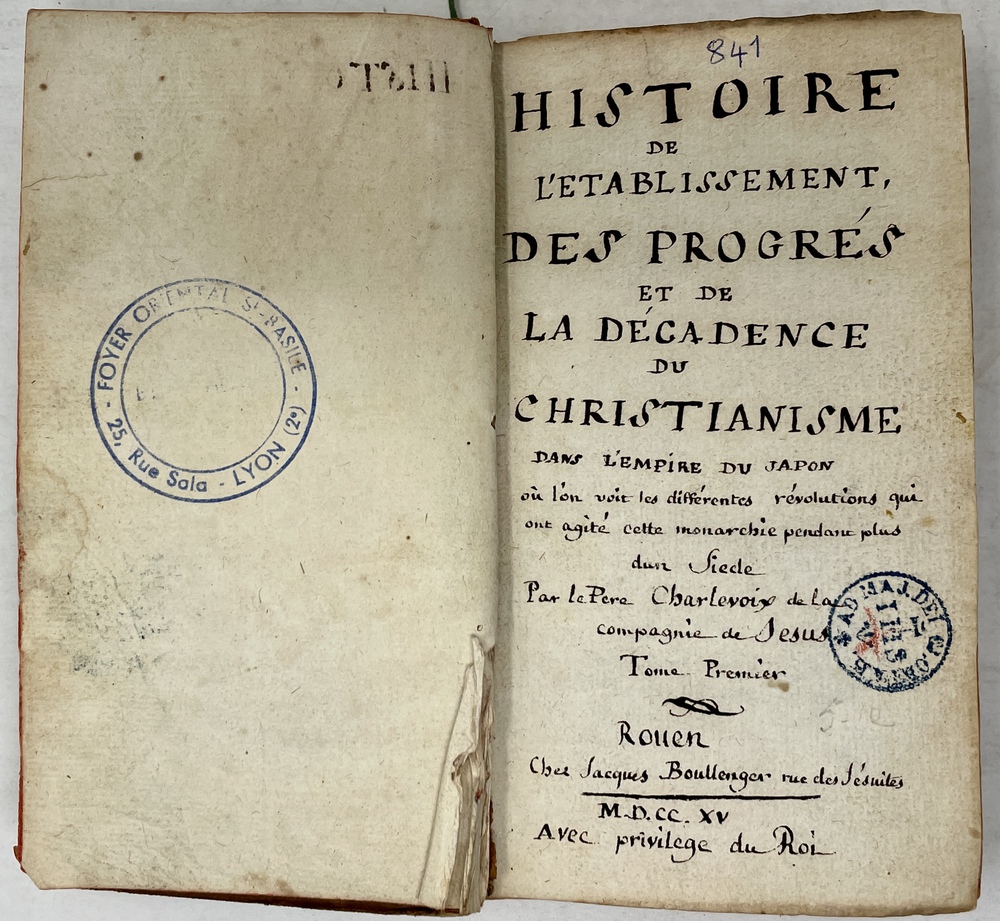 FOYER ORIENTAL St-BASILE -
- 25, Rue Sala - LYON (2e)
841
HISTOIRE
DE
L'ETABLISSEMENT,
DES PROGRÉS
ET DE
LA DÉCADENCE
DU
CHRISTIANISME
DANS L'EMPIRE DU JAPON
où l'on voit les différentes révolutions qui
ont agité cette monarchie pendant plus
dun Siecle
Par le Pere Charlevoix de la
compagnie de Jesus
Tome Premier
AD MAJ. DEI GLORIAM
Rouen
Chez Jacques Boullenger rue des Jésuites
M.D.CC.XV
Avec privilege du Roi